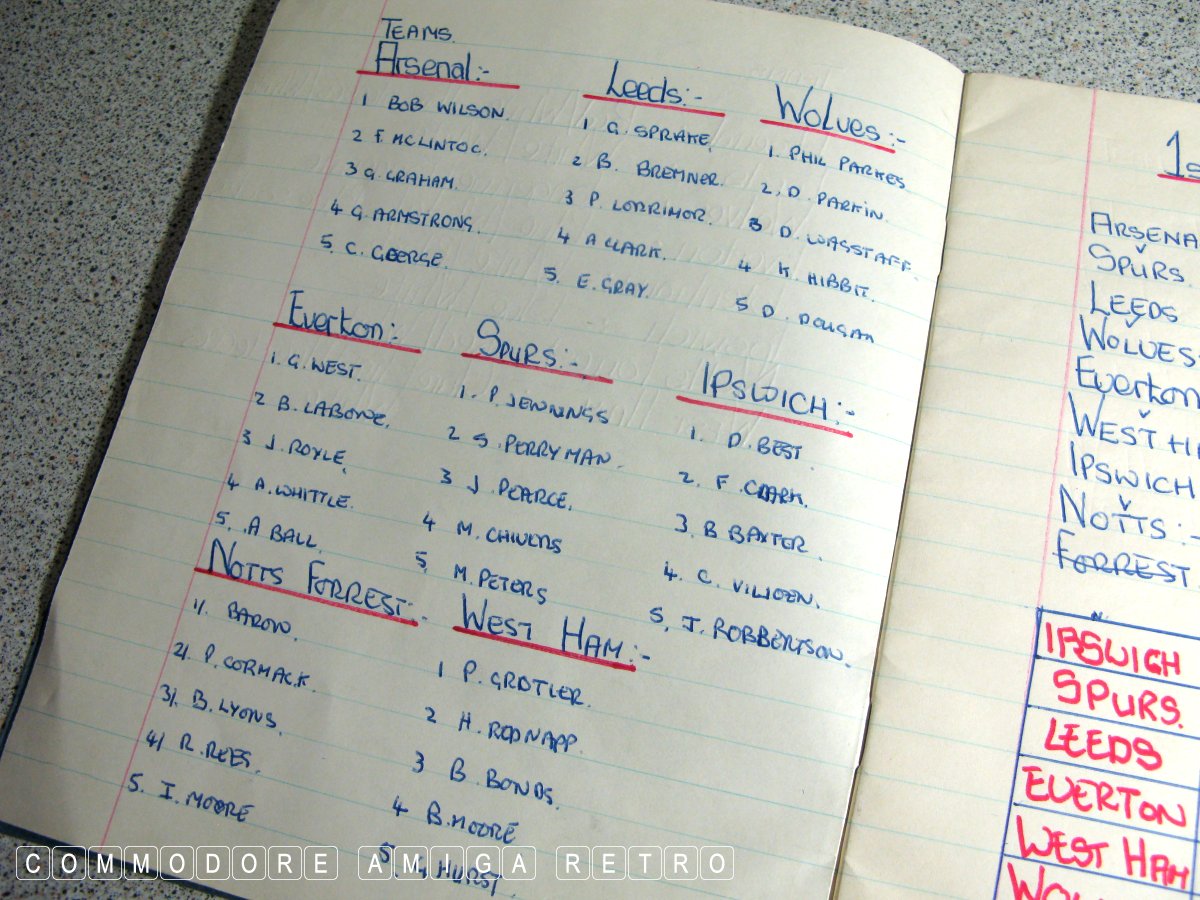 TEAMS.
Arsenal:-
1 BOB WILSON.
2 F. MCLINTOC.
3 G. GRAHAM.
4 G. ARMSTRONG.
5. C. GEORGE.
Leeds:-
1 G. SPRAKE.
2 B. BREMNER.
3 P. LORRIMOR.
4 A CLARK.
5. E. GRAY.
Wolves:-
1. PHIL PARKES
2, D. PARKIN.
3 D. WAGSTAFF.
4 K. HIBBIT.
5 D. DOUGAN
Everton:-
1. G. WEST.
2 B. LABONE.
3 J. ROYLE.
4 A. WHITTLE.
5. A BALL.
SPURS:-
1. P. JENNINGS
2 S. PERRYMAN.
3 J. PEARCE.
4 M. CHIVERS
5 M. PETERS
IPSWICH:-
1. D. BEST.
2. F. CLARK.
3. B BAXTER.
4. C. VILJOEN.
5. J. ROBBERTSON.
NOTTS FORREST:-
1/. BARON.
2/. P. CORMACK.
3/. B. LYONS.
4/ R. REES.
5. I. MOORE
WEST HAM:-
1 P. GROTIER.
2 H. REDNAPP.
3 B. BONDS.
4 B. MOORE
5. G. HURST.
1s
ARSENA
SPURS.
LEEDS
WOLVES
Everton
WEST H
IPSWICH
NOTTS:-
FORREST
IPSWICH
SPURS.
LEEDS
EVERTON
WEST HAM
WOL
COMMODORE AMIGA RETRO